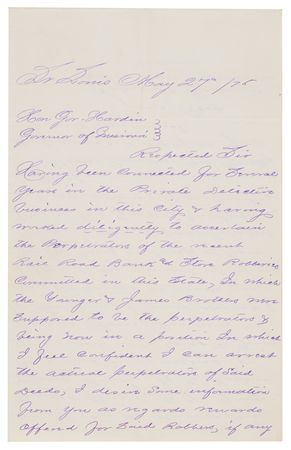 St Louis May 27th /75
Hon Gov. Hardin
Governor of Missouri
Respected Sir
Having been Connected for Several
Years in the Private Detective
business in this City & having
worked diligently to ascertain
the Perpetrators of the recent
Rail Road Bank & Store Robberies
Committed in this State, In which
the Younger & James Brothers are
supposed to be the perpetrators &
being now in a position In which
I feel Confident I can arrest
the actual perpetrators of Said
Deeds, I desire Some information
from You as regards rewards
Offered for Said Robbers, if any